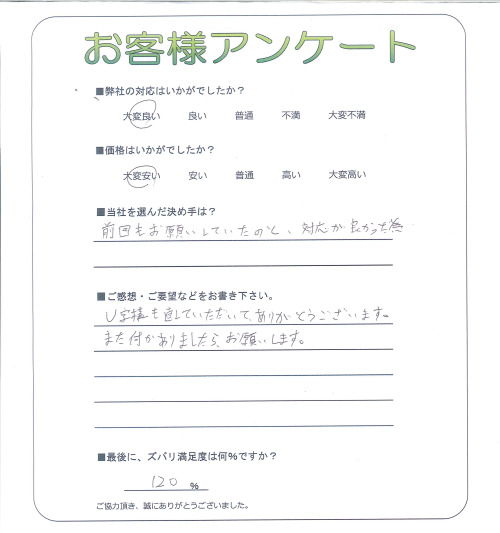 お客様アンケート
■弊社の対応はいかがでしたか？
大変良い 良い 普通 不満 大変不満
■価格はいかがでしたか？
大変安い 安い 普通 高い 大変高い
■当社を選んだ決め手は？
前回もお願いしていたのと、対応が良かった為
■ご感想・ご要望などをお書き下さい。
U字様も直していただいて、ありがとうございます。
また何かありましたら、お願いします。
■最後に、ズバリ満足度は何％ですか？
120 %
ご協力頂き、誠にありがとうございました。